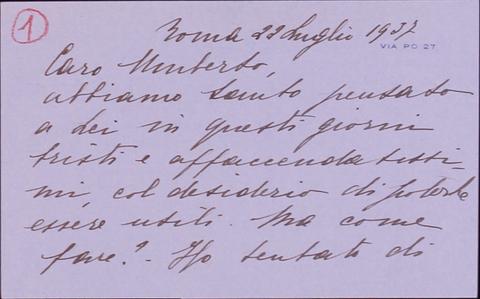 1
Roma 22 Luglio 1937
VIA PO 27
Caro Umberto,
abbiamo tanto pensato
a Lei in questi giorni
tristi e affaccendatissi-
mi, col desiderio di poterle
essere utili. Ma come
fare?. Ho tentato di